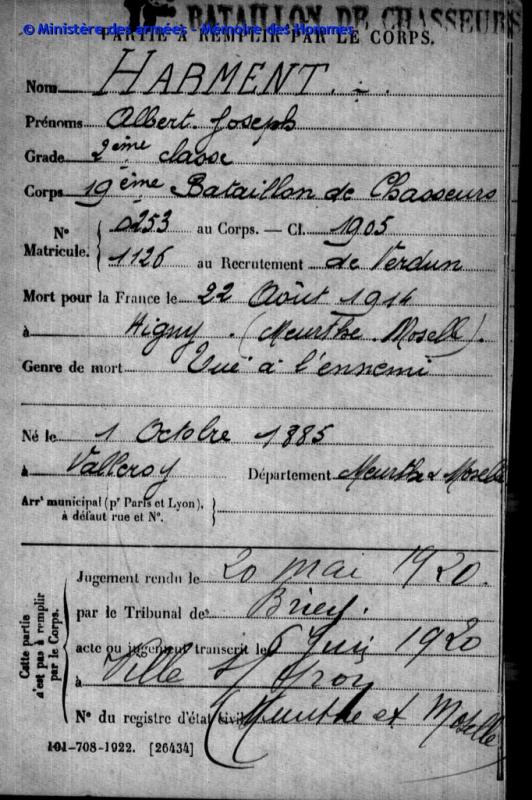 BATAILLON DE CHASSEURS
© Ministère des armées - Mémoire des Hommes
PARTIE À REMPLIR PAR LE CORPS.
Nom HARMENT.
Prénoms Albert Joseph
Grade 2ème classe
Corps 19ème Bataillon de Chasseurs
N° Matricule. { 0253 au Corps. — Cl. 1905
1126 au Recrutement de Verdun
Mort pour la France le 22 Août 1914
à (Meurthe Moselle).
Genre de mort Tué à l'ennemi
Né le 1 Octobre 1885
à Valleroy Département Meurthe & Moselle
Arrt municipal (pr Paris et Lyon), à défaut rue et N°. }
Cette partie n'est pas à remplir par le Corps.
Jugement rendu le 20 mai 1920.
par le Tribunal de Briey.
acte ou jugement transcrit le 6 Juin 1920
à Ville s/ Yron
N° du registre d'état civil (Meurthe et Moselle
101-708-1922. [26434]